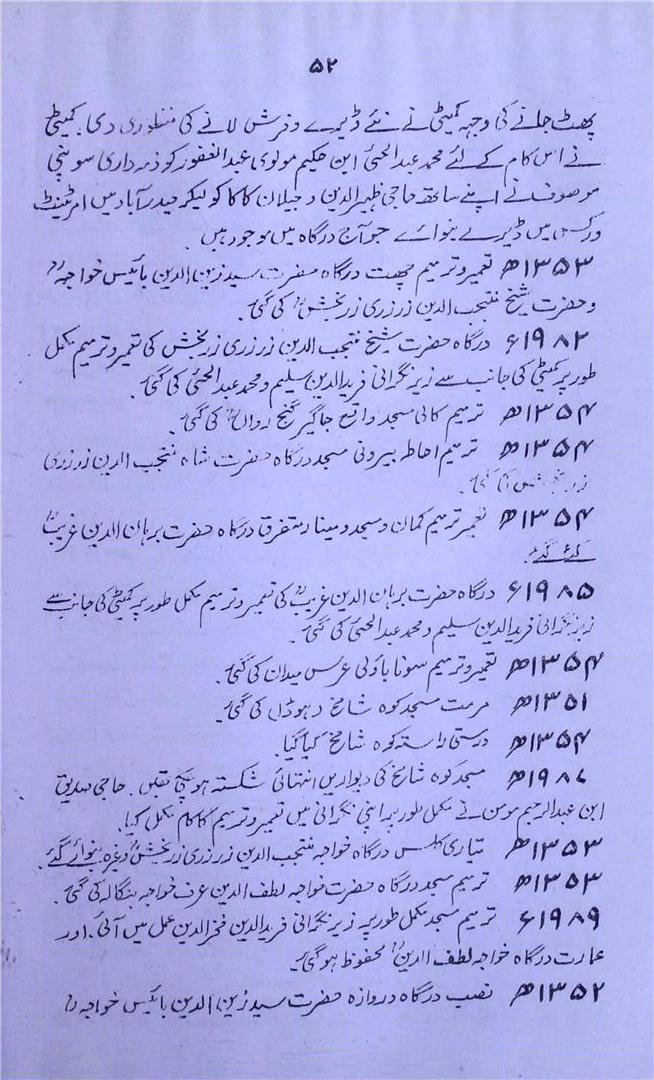 ۵۲
پھٹ جانے کی وجہہ کمیٹی نے نئے ڈیرے و فرش لانے کی منظوری دی. کمیٹی
نے اس کام کے لئے محمد عبدالحئی ابن حکیم مولوی عبدالغفور کو ذمہ داری سونپی
موصوف نے اپنے ساتھ حاجی ظہیر الدین و جیلان کاکا کو لیکر حیدرآباد میں امر ٹینٹ
ورکس میں ڈیرے بنوائے جو آج درگاہ میں موجود ہیں
۱۳۵۳ھ تعمیر و ترمیم چھت درگاہ حضرت سید زین الدین بائیس خواجہ رح
و حضرت شیخ منتجب الدین زرزری زر بخش رح کی گئی.
۱۹۸۲ء درگاہ حضرت شیخ منتجب الدین زرزری زربخش کی تعمیر و ترمیم مکمل
طور پر کمیٹی کی جانب سے زیر نگرانی فرید الدین سلیم و محمد عبدالحئی کی گئی.
۱۳۵۴ھ ترمیم کالی مسجد واقع جاگیر گنج رواں رح کی گئی.
۱۳۵۴ھ ترمیم احاطہ بیرونی مسجد درگاہ حضرت شاہ منتجب الدین زرزری
زر بخش کی گئی.
۱۳۵۴ھ تعمیر ترمیم کمان و مسجد و مینار متفرق درگاہ حضرت برہان الدین غریب رح
کئے گئے.
۱۹۸۵ء درگاہ حضرت برہان الدین غریب رح کی تعمیر و ترمیم مکمل طور پر کمیٹی کی جانب سے
زیر نگرانی فرید الدین سلیم و محمد عبدالحئی کی گئی.
۱۳۵۴ھ تعمیر و ترمیم سونا باولی عرس میدان کی گئی.
۱۳۵۱ھ مرمت مسجد کوہ شامخ دہوڈں کی گئی.
۱۳۵۴ھ درستی راستہ کوہ شامخ کیا گیا.
۱۹۸۷ھ مسجد کوہ شامخ کی دیواریں انتہائی شکستہ ہو چکی تھیں. حاجی صدیق
ابن عبدالرحیم مومن نے مکمل طور پر اپنی نگرانی میں تعمیر و ترمیم کا کام مکمل کیا.
۱۳۵۳ھ تیاری کلس درگاہ خواجہ منتجب الدین زرزری زر بخش رح وغیرہ بنوائے گئے.
۱۳۵۳ھ ترمیم مسجد درگاہ حضرت خواجہ لطف الدین عرف خواجہ بنگالہ کی گئی.
۱۹۸۹ء ترمیم مسجد مکمل طور پر زیر نگرانی فرید الدین فخر الدین عمل میں آئی. اور
عمارت درگاہ خواجہ لطف الدین رح محفوظ ہو گئی.
۱۳۵۲ھ نصب درگاہ دروازہ حضرت سید زین الدین بائیس خواجہ رح